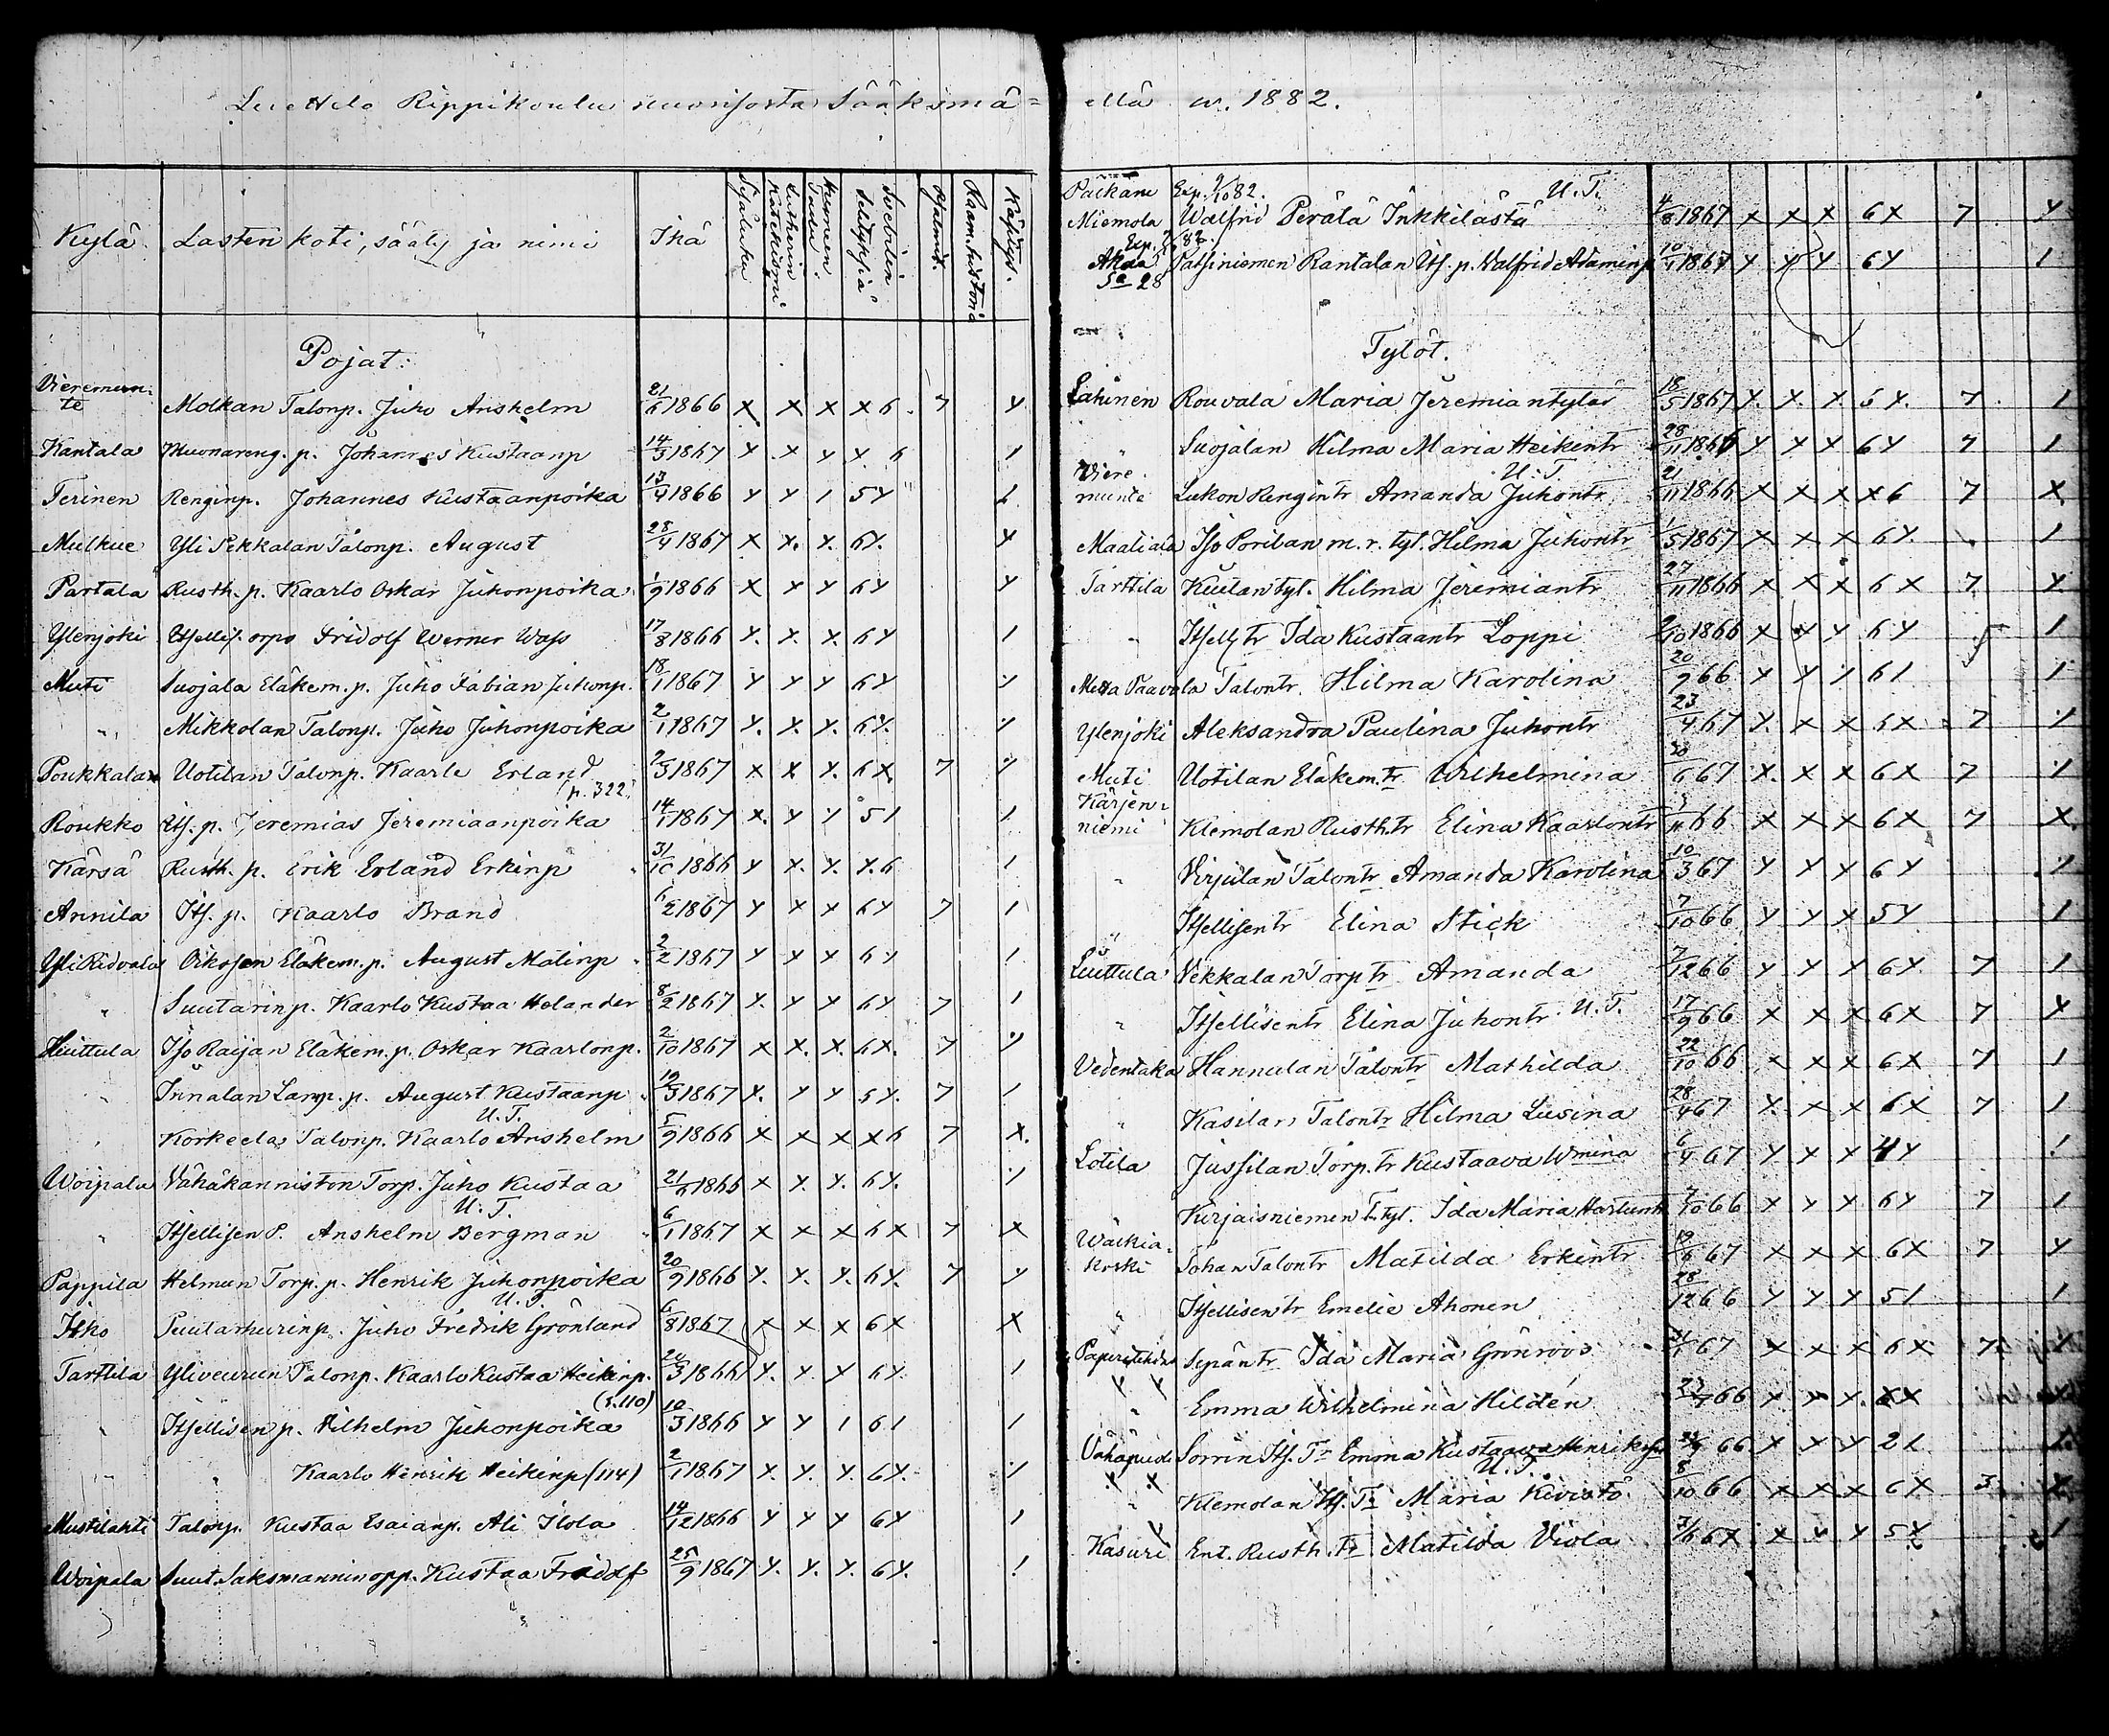 Luettelo Rippikoulu nuorisosta Sääksmä=
Kylä. Lasten koti, sääty ja nimi Ikä Sisäluku Lutherin Katekismi Hunen Taulu Svebilin Selityksiä Psalmit. Raam. historia Käsitys.
Pojat:
Vieremun-
te Molkan Talonp. Juho Anshelm 21/6 1866 x x x x 6. 7 y
Kantala Muonareng. p. Johannes Kustaanp 14/3 1867 y x y y. 6 1
Terinen Renginp. Johannes Kustaanpoika 13/4 1866 y y 1 5 y 1
Mulkue Yli Pekkalan Talonp. August 28/4 1867 x x. y. 6 y. y
Partala Rusth. p. Kaarlo Oskar Juhonpoika 1/9 1866 x y y 6 y y
Ylenjoki Itsellis. orpo Fridolf Werner Wass 17/8 1866 y. x. x. 6 y 1
Muti Suojala Eläkem. p. Juho Fabian Juhonp. 18/1 1867 y y y 6 y y
" Mikkolan Talonp. Juho Juhonpoika 2/1 1867 y. y. y. 6 y. y
Poukkala Uotilan Talonp. Kaarle Erland 9/3 1867 x x y. 6 x 7 y
p. 322.
Roukko Its. p. Jeremias Jeremiaanpoika 14/1 1867 x. y y 5 1 1
Kärsä Rusth. p. Erik Erland Erkinp 31/10 1866 y x. y. y. 6 1
Annila Its. p. Kaarlo Brand 6/2 1867 y x x 6 y 7 1
Yli Ridvala Oikosen Eläkem. p. August Matinp 2/2 1867 y x x 6 y 1
" Suutarinp. Kaarlo Kustaa Helander 8/2 1867 y. y y 6 y 7 1
Huittula Iso Raijan Eläkem. p. Oskar Kaarlonp. 2/10 1867 x x. x. 6 x. 7 y
" Innalan Lamp. p. August Kustaanp 19/3 1867 y. y y 5 y. 7 1
U. T.
" Korkeela Talonp. Kaarlo Anshelm 5/9 1866 x x x x 6 7 x.
Woipala Vähäkanniston Torp. Juho Kustaa 21/6 1866 x y. y. 6 y. y
U. T.
" Itsellisen P. Anshelm Bergman 6/1 1867 x x x 6 x 7 x
Pappila Helmun Torp. p. Henrik Juhonpoika 20/9 1866 y. y. y. 6 y. 7 y
U. T.
Isko Puutarhurinp. Juho Fredrik Grönlund 6/8 1867 x x x 6 x x
Tarttila Yliveurun Talonp. Kaarlo Kustaa Heikinp. 20/3 1866 y. y. y 6 y. 1
(s. 110)
" Itsellisen p. Vilhelm Juhonpoika 10/3 1866 y y 1 6 1 1
" " Kaarlo Henrik Heikinp (114) 2/1 1867 y. y. y. 6 y. y
Mustilahti Talonp. Kustaa Esaianp. Ali Ilola 14/12 1866 y y y 6 y 1
Woipala Suut. Saksmannin opp. Kustaa Fridolf 25/9 1867 y. y. y. 6 y. 1
ellä w. 1882.
Pälkäne Exp. 9/10 82. U. T.
Miemola Walfrid Perätä Inkkilästä 4/8 1867 x x x 6 x 7 y
Akaa Patsiniemen Rantalan Its. p. Walfrid Adaminp 10/1 1867 y y y 6 y 1
Tytöt.
Lahinen Rouvala Maria Jeremiantytär 18/5 1867 y. x. y. 5 y. 7. 1
" Suojalan Hilma Maria Heikintr 28/11 1866 y y x 6 y 7 1
Viere- U. T.
munte Lukon Rengintr Amanda Juhontr 21/11 1866 x x x x 6 7 x
Maatiala Iso Porilan m. r. tyt. Hilma Juhontr 1/5 1867 x x x 6 y. 1
Tarttila Kuulan tyt. Hilma Jeremiantr 27/11 1866 x x x 6 x 7 y.
" Itsell. tr Ida Kustaantr Loppi 2/10 1866 x x y 6 y 5 1
Metsa Paavola Talontr. Hilma Karolina 20/9 66 x y y 6 1 1
Ylenjoki Aleksandra Paulina Juhontr 23/4 67 y. x x 5 x 7 y
Muti Uotilan Eläkem. tr Wilhelmina 20/6 67 x. x x 6 x 7 y
Kärjen-
niemi Klemolan Rusth. tr Elina Kaarlontr 3/11 66 x x x 6 x 7 x.
" Virjulan Talontr Amanda Karolina 10/3 67 y y y 6 y 1
" Itsellisentr Elina Stick 7/10 66 y y x 5 y 1
Luttula Vekkalan Torp tr Amanda 7/12 66 y y y 6 y. 7 1
" Itsellisentr Elina Juhontr U. T. 17/9 66 x x x 6 x 7 x
Vedentaka Hannulan Talontr Mathilda 22/10 66 x x x 6 x 7 1
" Kasilan Talontr Hilma Lusina 28/4 67 y. x x 6 x 7 1
Lotila Jussilan Torp. tr Kustaava Wmina 6/4 67 y x x 4 y 1
" Kurjaisniemen T. tyt. Ida Maria 7/10 66 x x x 6 y 7 1
Wälkiä-
koski Johan Talontr Matilda Erkintr 19/6 67 x x x 6 x 7 y
" Itsellisentr Emelie Ahonen 28/12 66 y y y 5 1 1
Paperitehdas Sepäntr Ida Maria Grönroos 31/1 67 x x x 6 x 7 y
" Emma Wilhelmina Hildén 23/7 66 x x x. 6 x
Vähäpudi Sorrin Its. Tr Emma Kustaava 66 x x y 2 1 1
U. T.
" Klemolan Its. Tr Maria Kivistö 8/10 66 x x x 6 x 3 x
Kasuri Ent. Rusth. Tr Matilda Viola x x y 5 y 1